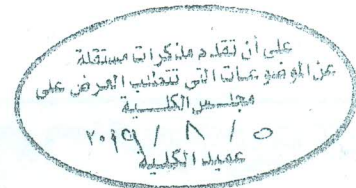 على أن تقدم مذكرات مستقلة
عن الموضوعات التي تتطلب العرض على
مجلس الكلية
٢٠١٩ / ٨ / ٥
عميد الكلية